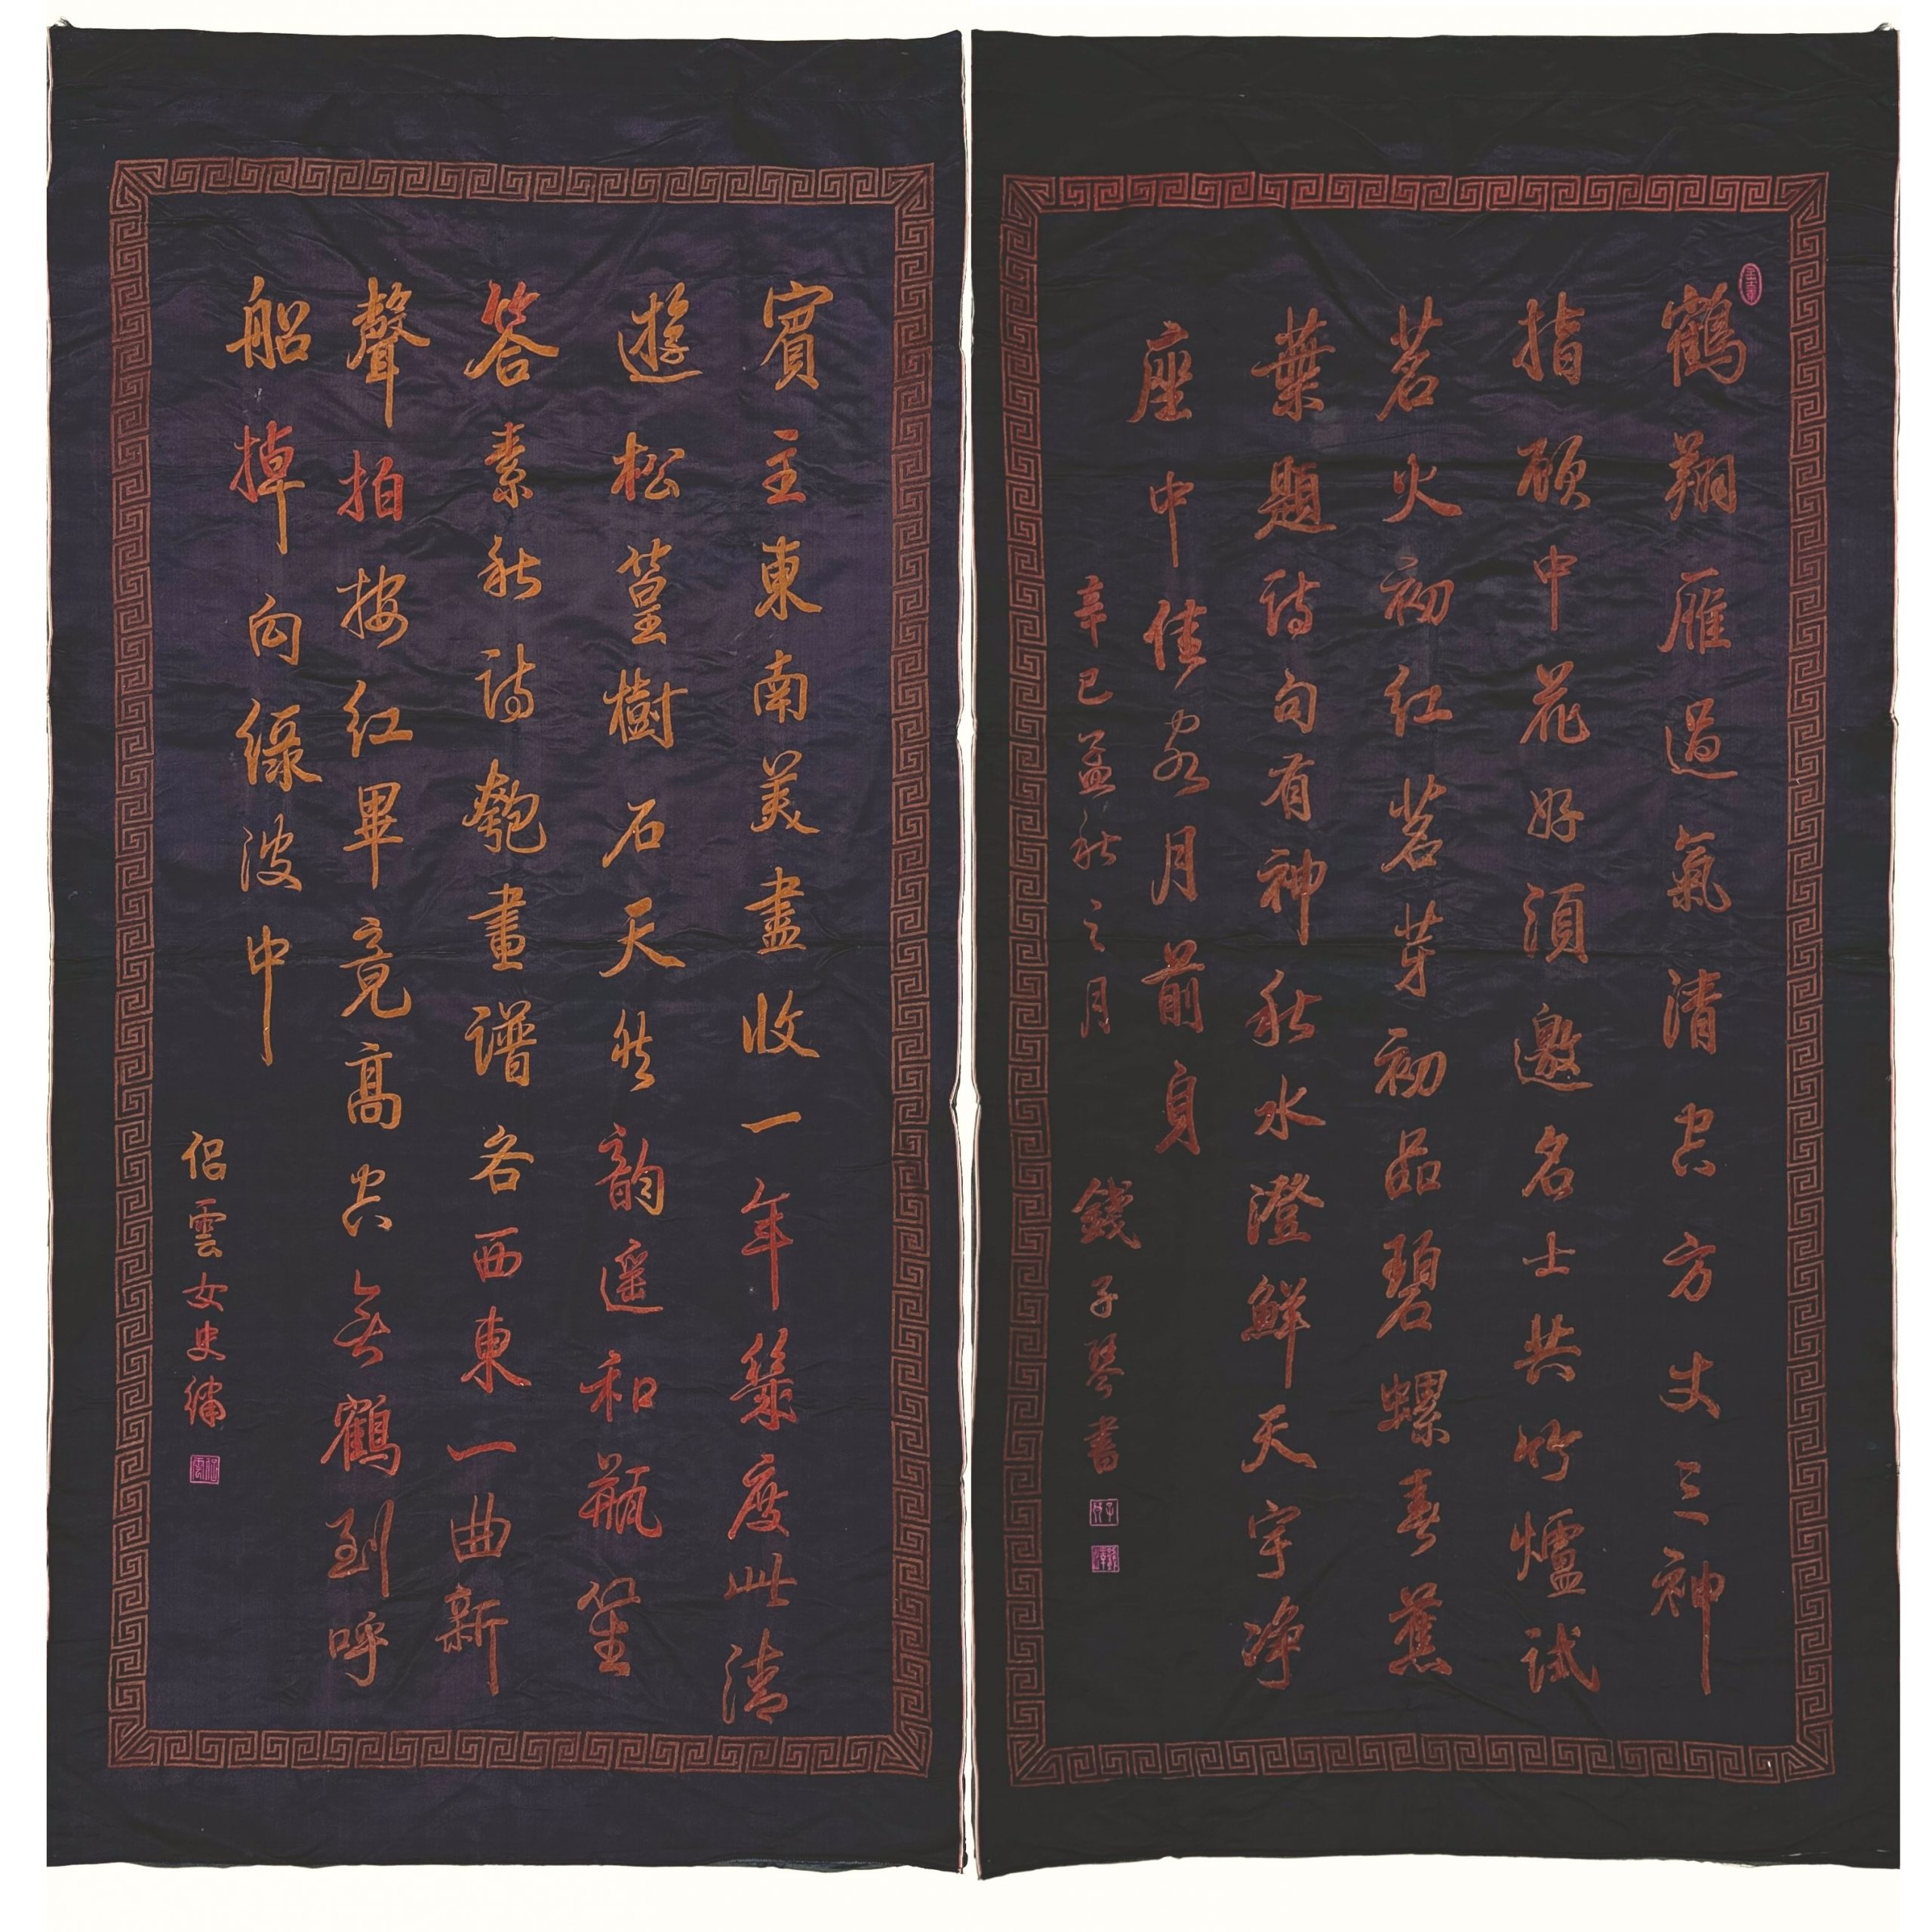 鶴翔雁過氣清空方丈三神
指顧中花好須邀名士共竹爐試
茗火初紅茗芽初品碧螺春蕉
葉題詩句有神秋水澄鮮天宇淨
座中佳客月前身
辛巳孟秋之月 錢子琴書
賓主東南美盡收一年幾度此清
遊松篁樹石天然韵遥和瓶笙
答素秋詩瓢畫譜各西東一曲新
聲拍按紅畢竟高空無鶴到呼
船掉向綠波中
侶雲女史繡
侶雲